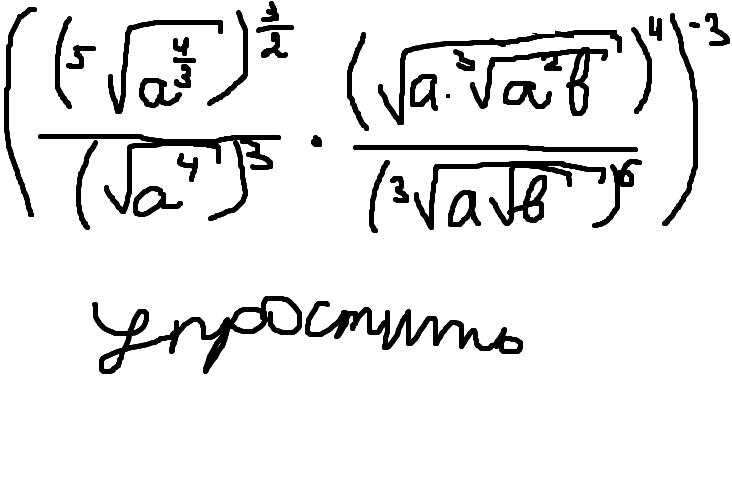 ((⁵√(a^(4/3)))^(3/2) / (√(a⁴))³ · (√(a·³√(a²b)))⁴ / (³√(a√b))⁶)⁻³
упростить